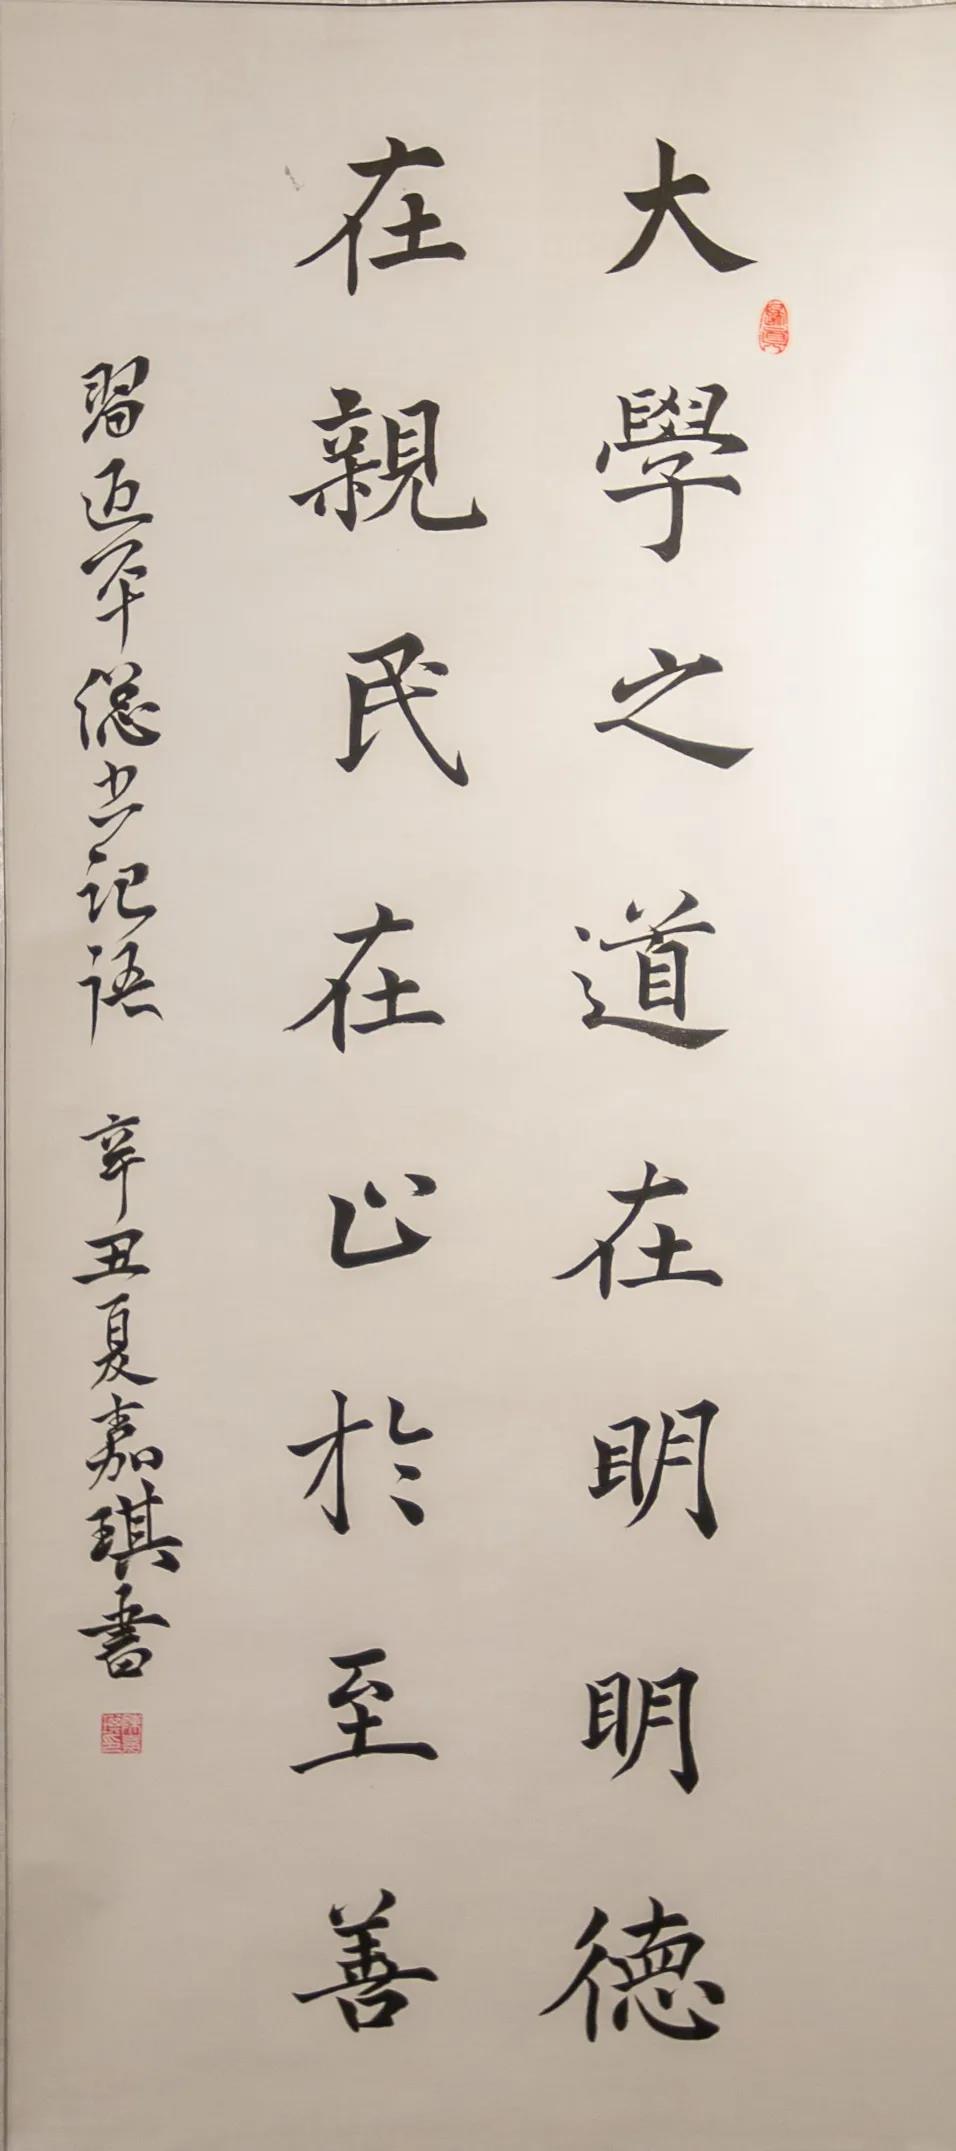 大學之道在明明德
在親民在止於至善
習近平總书記語 辛丑夏嘉琪書